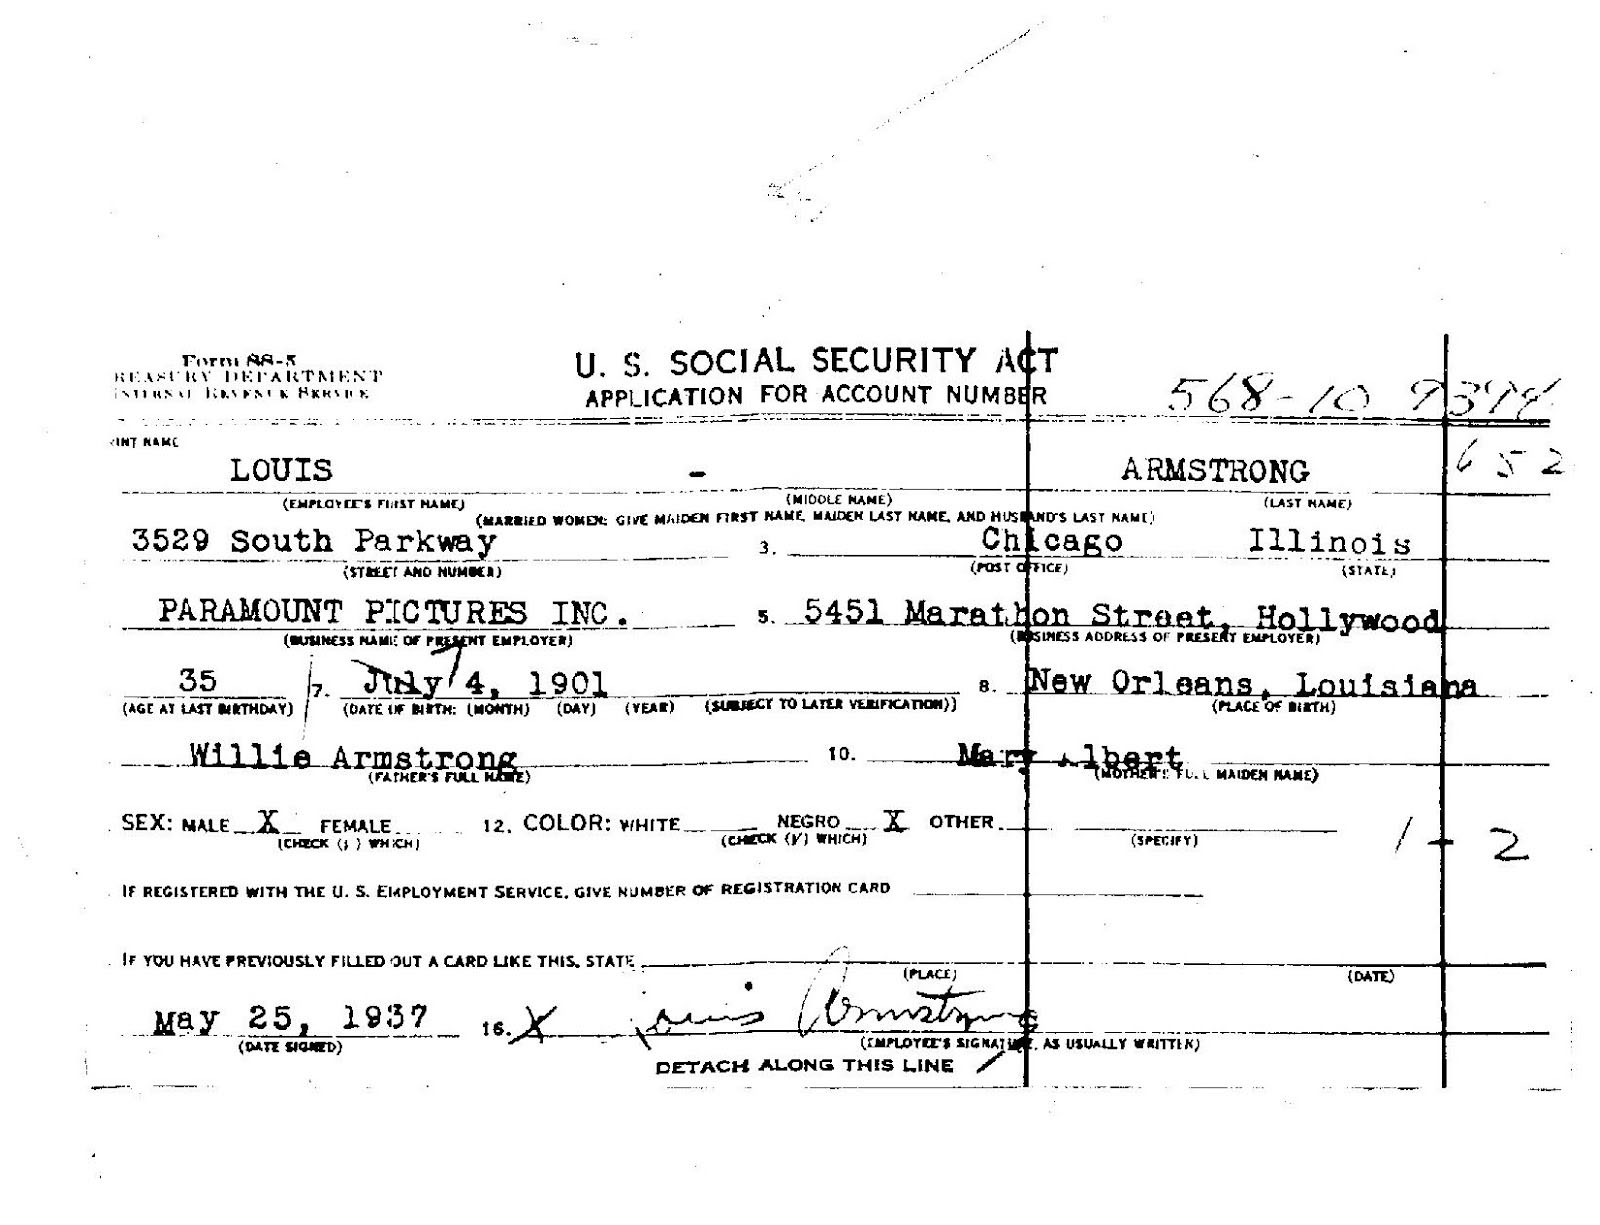 Form SS-5
U. S. SOCIAL SECURITY ACT
REASURY DEPARTMENT
INTERNAL REVENUE SERVICE
APPLICATION FOR ACCOUNT NUMBER
568-10
RINT NAME
652
LOUIS - ARMSTRONG
(EMPLOYEE'S FIRST NAME) (MIDDLE NAME) (LAST NAME)
(MARRIED WOMEN: GIVE MAIDEN FIRST NAME, MAIDEN LAST NAME, AND HUSBAND'S LAST NAME)
3529 South Parkway 3. Chicago Illinois
(STREET AND NUMBER) (POST OFFICE) (STATE)
PARAMOUNT PICTURES INC. 5. 5451 Marathon Street, Hollywood
(BUSINESS NAME OF PRESENT EMPLOYER) (BUSINESS ADDRESS OF PRESENT EMPLOYER)
35 7. July 4, 1901 8. New Orleans, Louisiana
(AGE AT LAST BIRTHDAY) (DATE OF BIRTH: (MONTH) (DAY) (YEAR) (SUBJECT TO LATER VERIFICATION)) (PLACE OF BIRTH)
Willie Armstrong 10. Mary Albert
(FATHER'S FULL NAME) (MOTHER'S FULL MAIDEN NAME)
SEX: MALE X FEMALE 12. COLOR: WHITE NEGRO X OTHER
(CHECK (√) WHICH) (CHECK (√) WHICH) (SPECIFY)
1 - 2
IF REGISTERED WITH THE U. S. EMPLOYMENT SERVICE, GIVE NUMBER OF REGISTRATION CARD
IF YOU HAVE PREVIOUSLY FILLED OUT A CARD LIKE THIS, STATE
(PLACE) (DATE)
May 25, 1937 16. X Louis Armstrong
(DATE SIGNED) (EMPLOYEE'S SIGNATURE, AS USUALLY WRITTEN)
DETACH ALONG THIS LINE